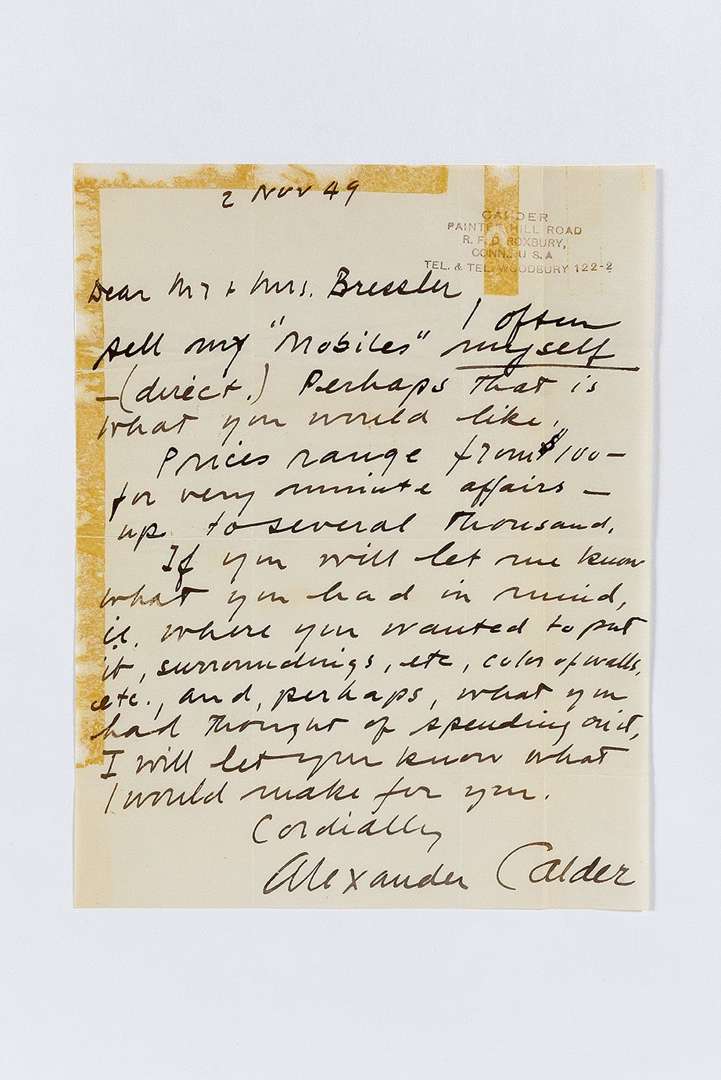 2 Nov 49
CALDER
PAINTER HILL ROAD
R. F. D. ROXBURY,
CONN. U S A
TEL. & TEL. WOODBURY 122-2
Dear Mr + Mrs. Bressler
I often
sell my "Mobiles" myself
—(direct.) Perhaps that is
what you would like.
Prices range from $100—
for very minute affairs —
up to several thousand.
If you will let me know
what you had in mind,
i.e. where you wanted to put
it, surroundings, etc, color of walls,
etc., and, perhaps, what you
had thought of spending on it,
I will let you know what
I would make for you.
Cordially
Alexander Calder